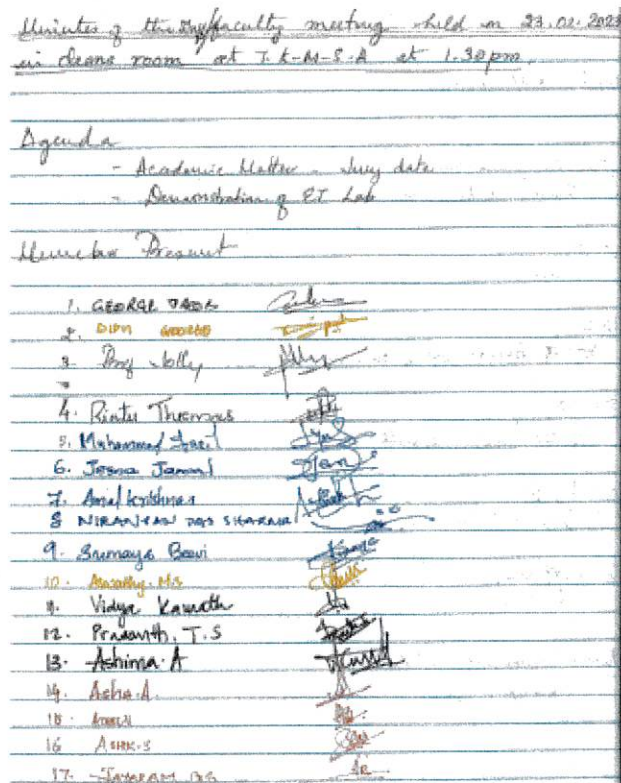 Minutes of the faculty meeting held on 23.02.2023
in deans room at T.K.M.S.A at 1.30pm.
Agenda
- Academic Matter - Jury date
- Demonstration of ET Lab
Members Present
1. GEORGE JACOB
2. DIPN GEORGE
3. Prof Jolly
4. Rintu Thomas
5. Muhammed
6. Josna Jamal
7. Amal krishnan
8 NIRANJAN DAS SHARMA
9. Sumaya Beevi
10. M.S
11. Vidya Kamath
12. Prasanth. T.S
13. Ashima. A
14. Asha. A
15.
16 ASHK-S
17. JAYARAM